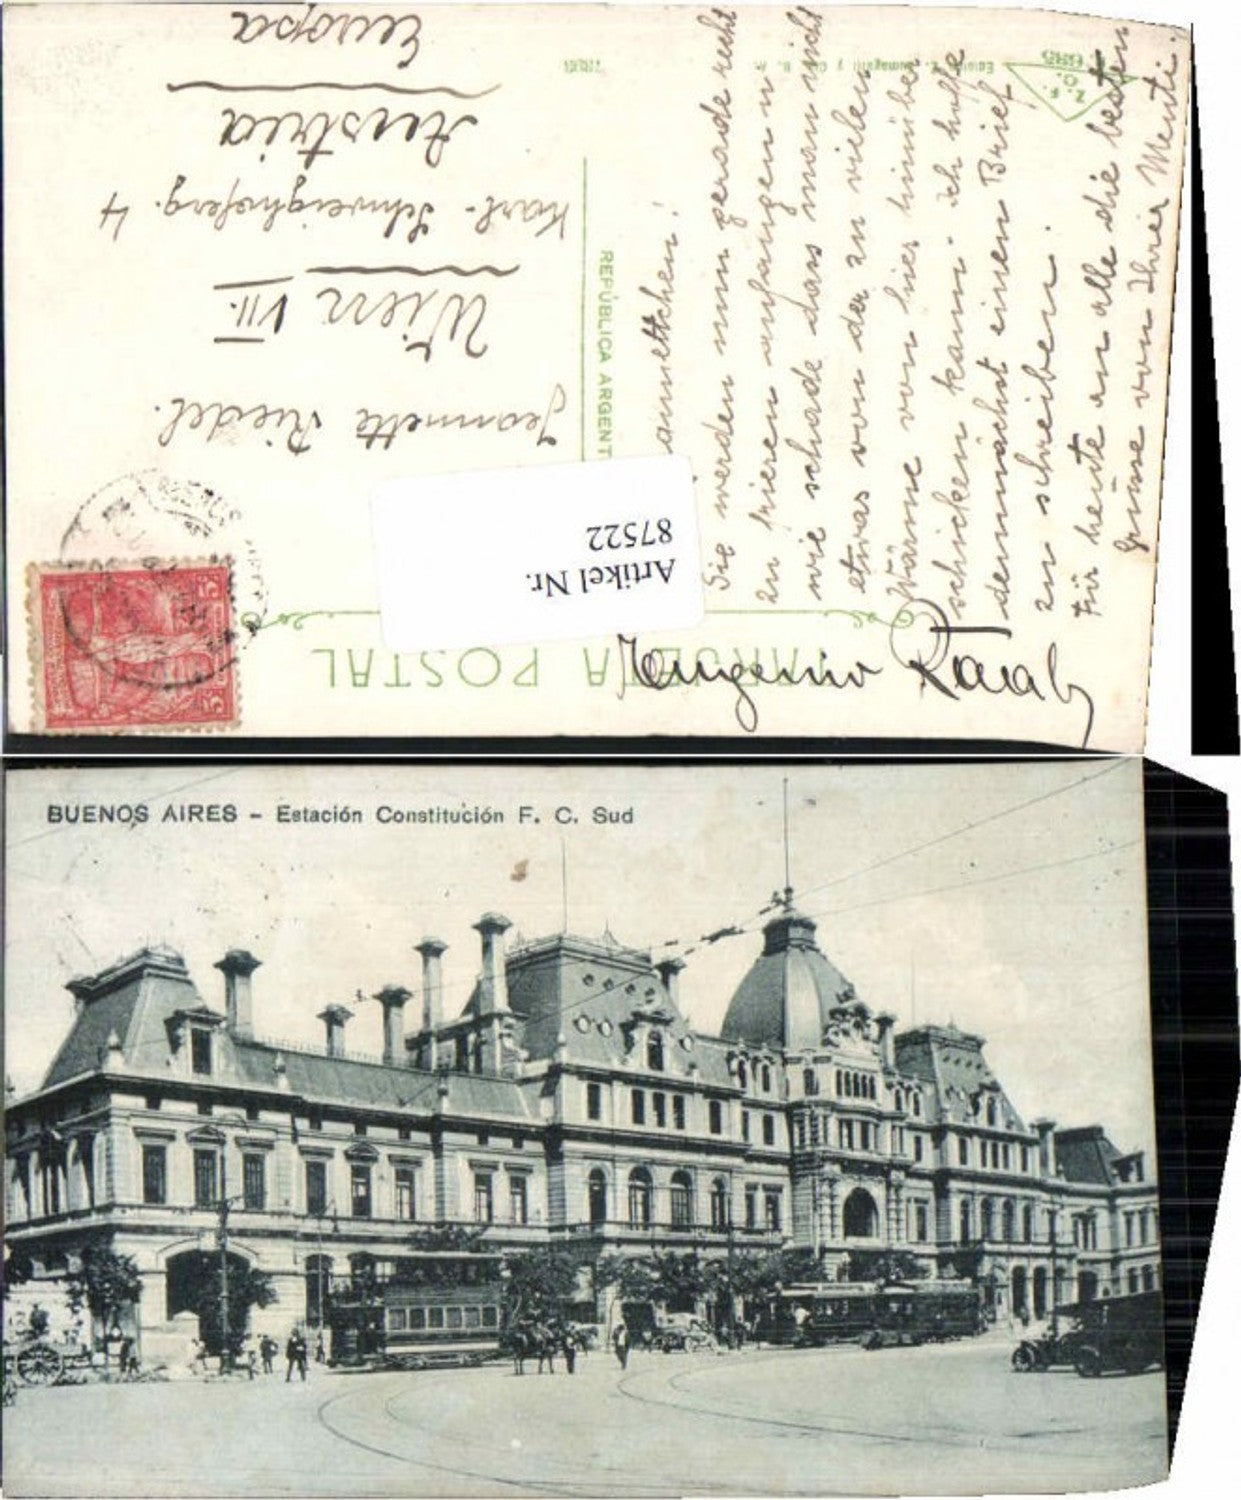 TARJETA POSTAL
REPÚBLICA ARGENT
Artikel Nr.
87522
Jeannette Riedel.
Wien VII.
Karl-Schweighoferg. 4
Austria
Europa
annettchen!
Sie werden nun gerade recht
zu frieren anfangen u
wie schade dass man nicht
etwas von der zu vielen
Wärme von hier hinüber
schicken kann. ich hoffe
demnächst einen Brief
zu schreiben.
Für heute an alle die besten
Grüsse von Ihrer Menti.
Eugenio Raab
5
5
BUENOS AIRES – Estación Constitución F. C. Sud